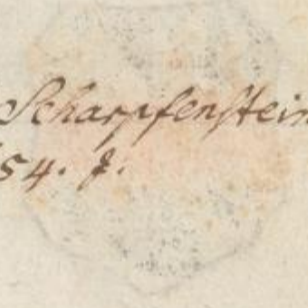 Scharpfenstein
54. f.